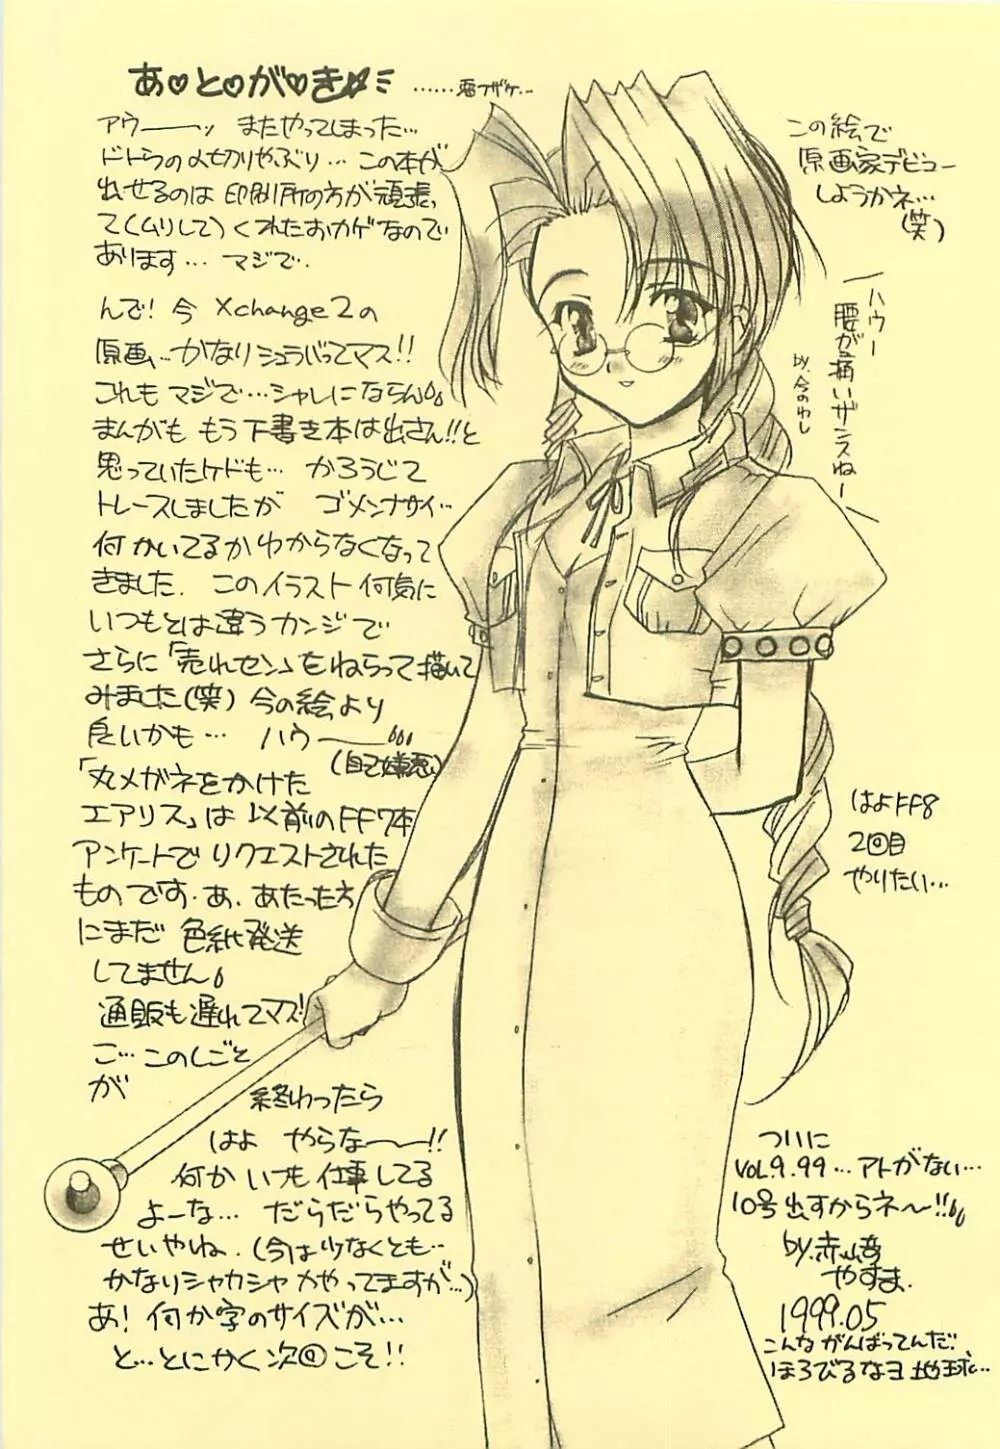 あ♡と♡が♡き☆ミ
……悪フザケ…
アウーーッ またやってしまった…
ドトウの〆切りやぶり… この本が
出せるのは 印刷所の方が頑張っ
て(ムリして)くれたおカゲなので
あります… マジで.
んで! 今 Xchange2の
原画… かなりシュラバってマス!!
これも マジで… シャレにならん
まんがも もう下書き本は出さん!!と
思っていたケドも… かろうじて
トレースしましたが ゴメンナサイ…
何かいてるかわからなくなって
きました. このイラスト 何気に
いつもとは違うカンジで
さらに「売れセン」をねらって描いて
みました(笑) 今の絵より
良いかも… ハウーー
(自己嫌悪)
「丸メガネをかけた
エアリス」は 以前のFF7本
アンケートでリクエストされた
ものです. あ. あたった方
にまだ 色紙発送
してません
通販も遅れてマス!
こ… このしごと
が
終わったら
はよ やらな〜〜!!
何か いつも仕事してる
よーな… だらだらやってる
せいやね. (今は少なくとも…
かなりシャカシャカやってますが…)
あ! 何か字のサイズが…
と…とにかく次回こそ!!
この絵で
原画家デビュー
しようかネ…
(笑)
ハウー
腰が痛いザンスねー
by.今のわし
はよFF8
2回目
やりたい…
ついに
VOL.9.99… アトがない…
10号出すからネ〜!!
by.赤崎
やすま.
1999.05
こんながんばってんだ.
ほろびるなヨ 地球…